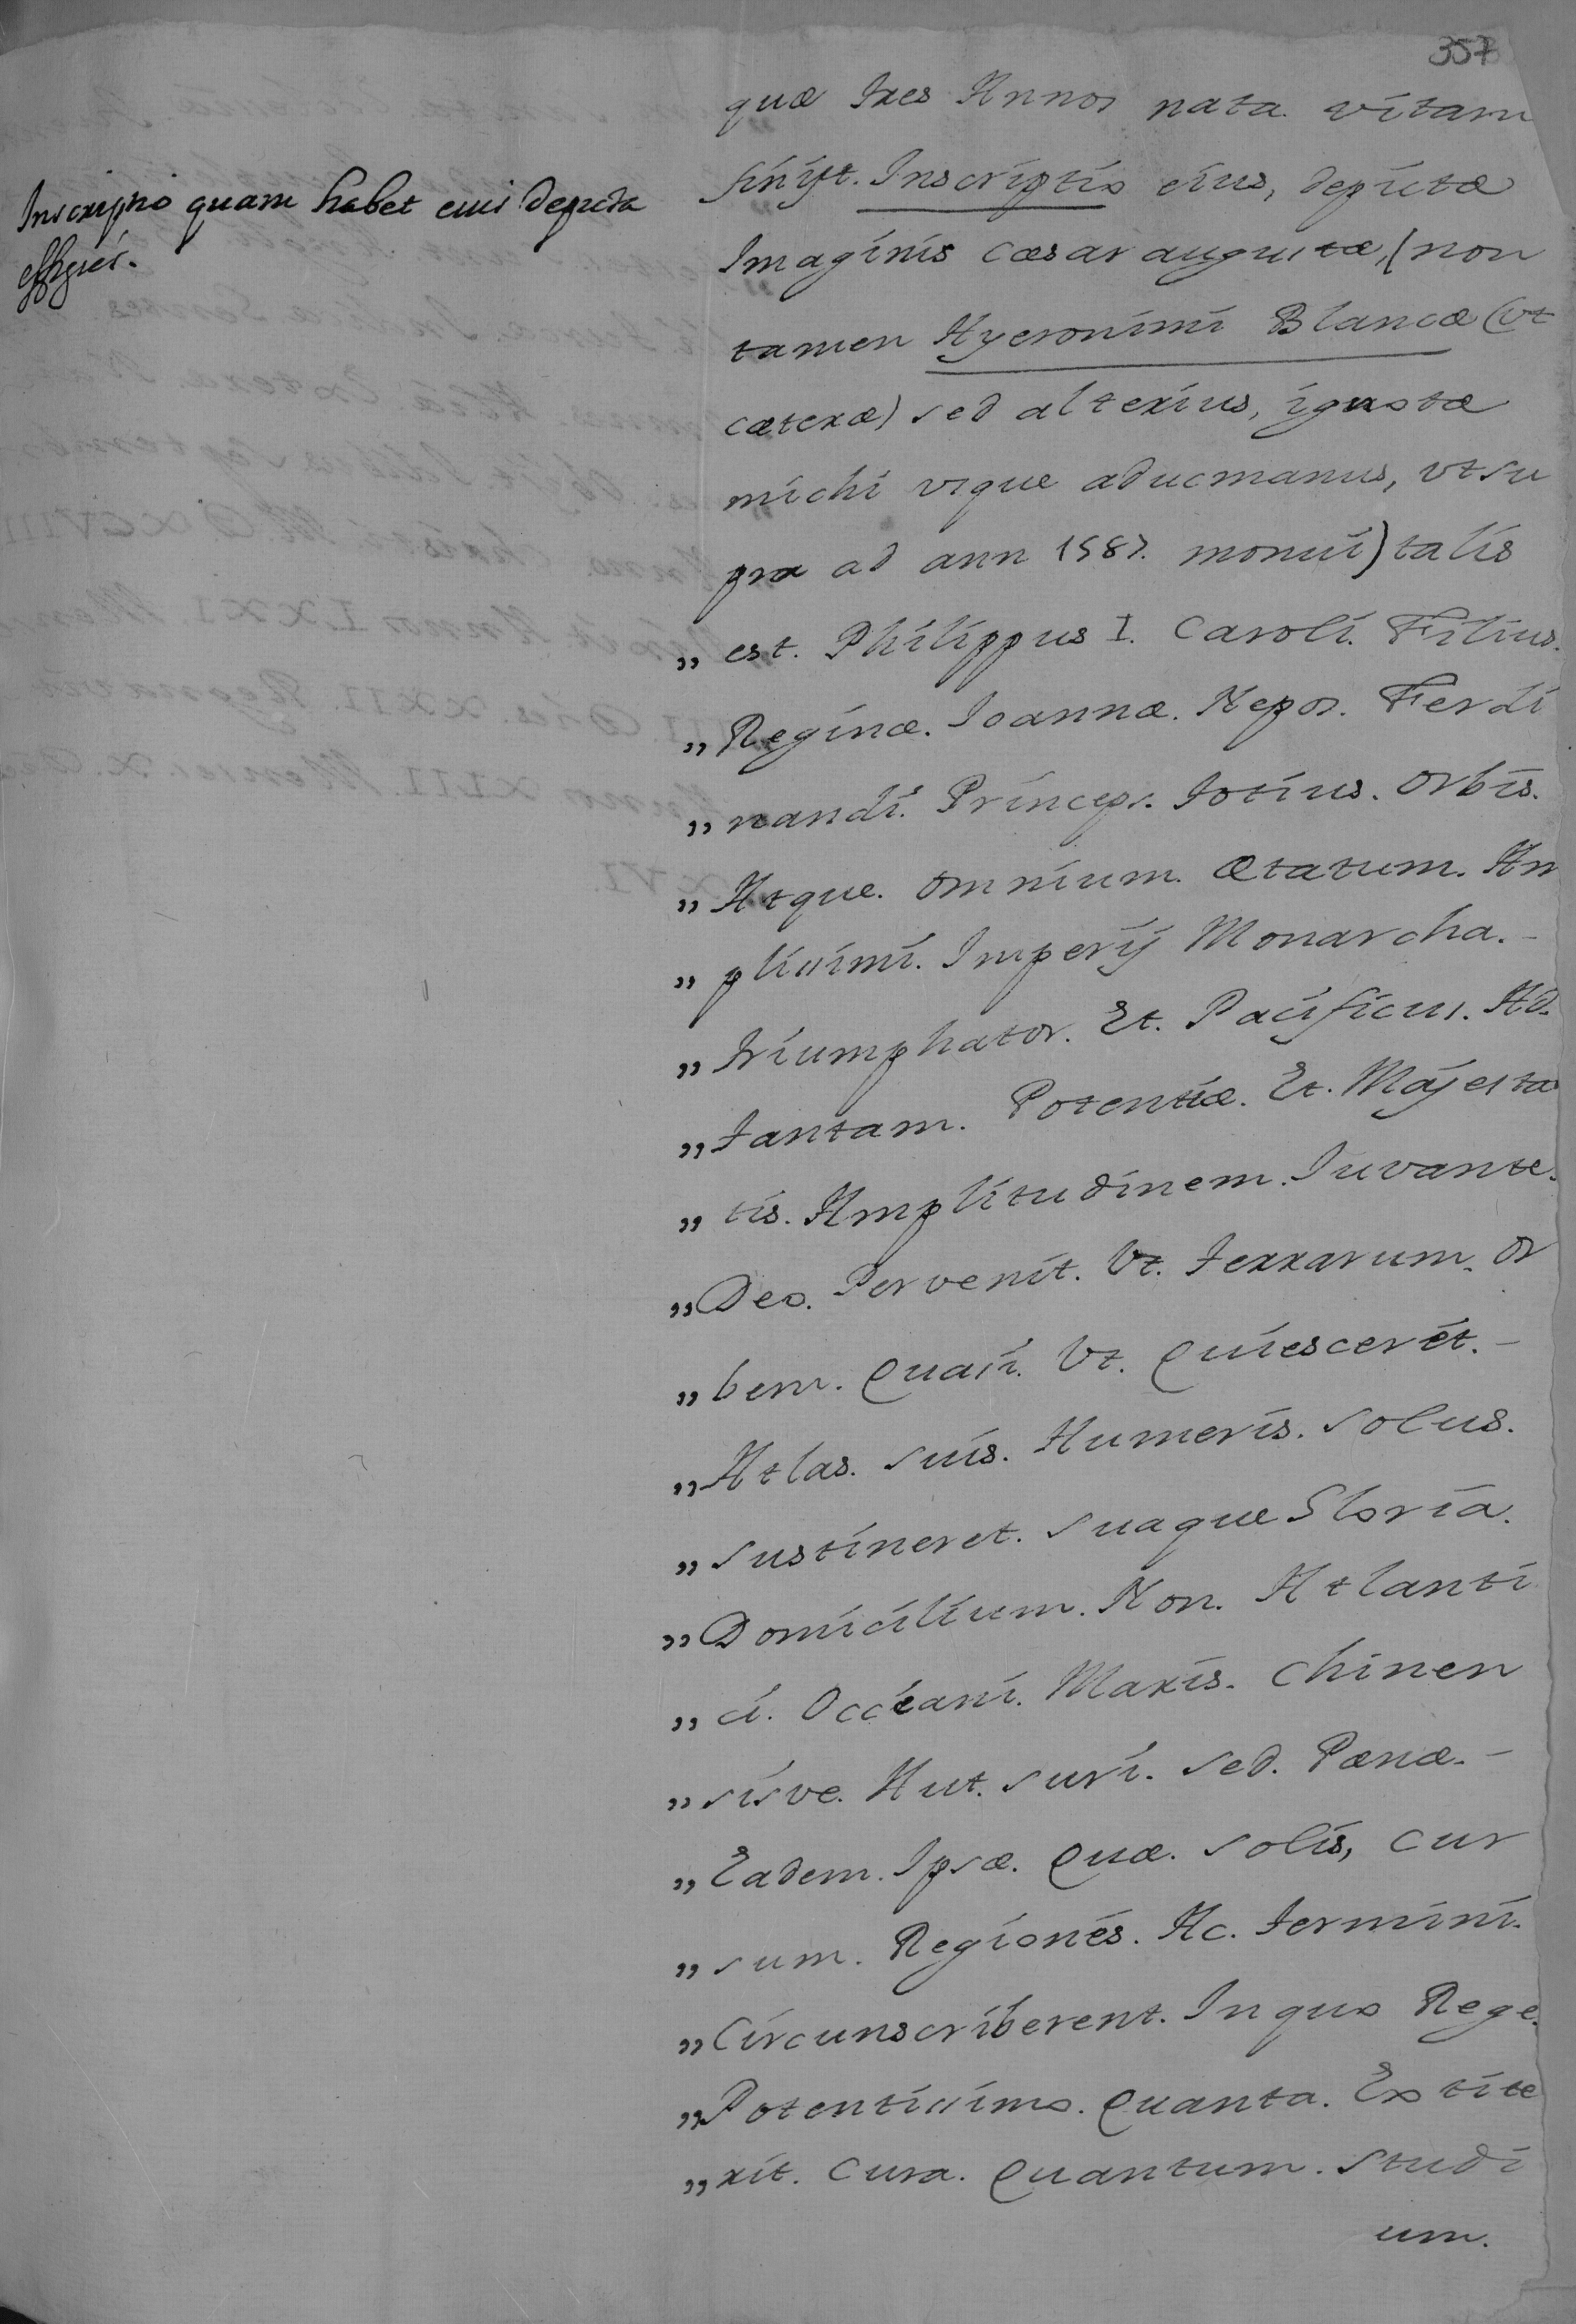 357
quæ tres Annos nata vitam
finijt. Inscriptio eius, depictæ
Imaginis Cæsaraugustæ, (non
tamen Hyeronimi Blancæ (vt
cæteræ) sed alterius, ignotæ
michi vsque aducmanus, vtsu
pra ad ann 1587. monui) talis
„ est. Philippus I. Caroli. Filius.
„ Reginæ. Ioannæ. Nepos. Ferdi
„ nandi. Princeps. totius. orbis.
„ Atque. omnium. ætatum. Am
„ plissimi. Imperij Monarcha. -
„ triumphator. Et. Pacificus. Ad.
„ tantam. Potentiæ. Et. Majesta
„ tis. Amplitudinem. Iuvante.
„ Deo. Pervenit. Vt. terrarum. or
„ bem. Quasi. Vt. Quiesceret. -
„ Atlas. suis. Humeris. solus.
„ sustineret. suaque Gloria.
„ Domicilium. Non. Atlanti
„ ci. Occeani. Maris. Chinen
„ sisve. Aut. suri. sed. Pænæ. -
„ Eadem. Ipsæ. Quæ. solis, cur
„ sum. Regiones. Ac. termini.
„ Circunscriberent. Inquo Rege.
„ Potentissimo. Quanta. Extite
„ rit. Cura. Quantum. studi
um.
Inscriptio quam habet eius depicta
effigies.